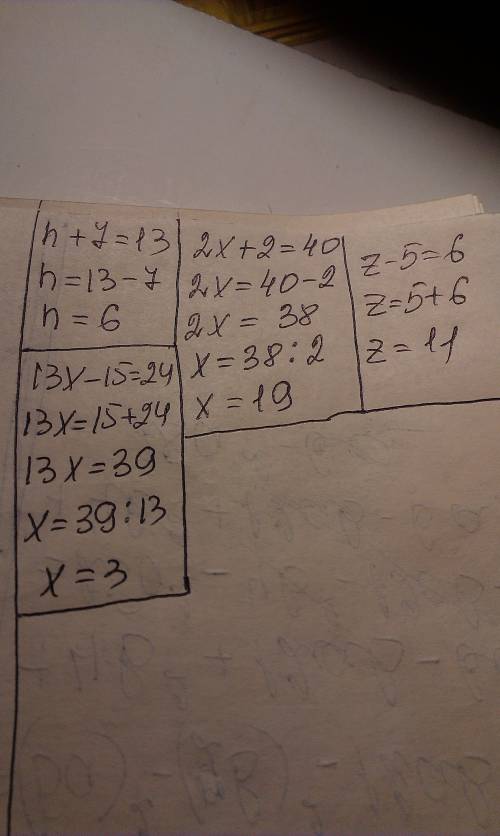 n+7=13
n=13-7
n=6
2x+2=40
2x=40-2
2x=38
x=38:2
x=19
z-5=6
z=5+6
z=11
13x-15=24
13x=15+24
13x=39
x=39:13
x=3